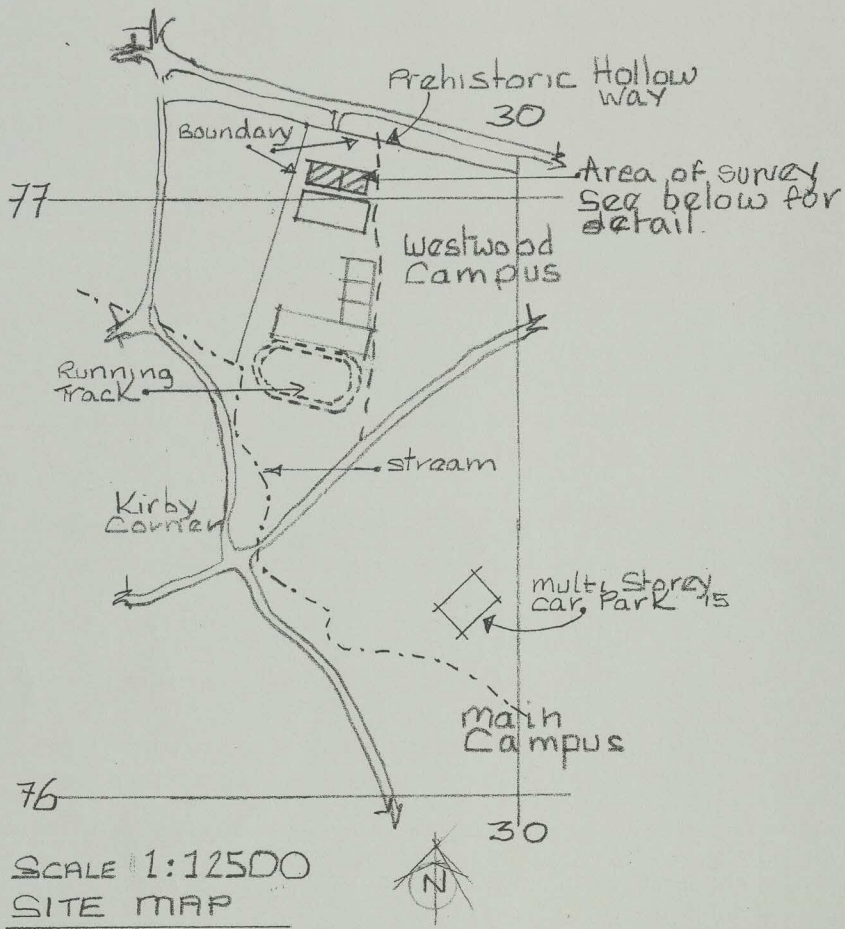 Prehistoric Hollow
way
30
Boundary
Area of survey
See below for
detail.
77
Westwood
Campus
Running
Track
stream
Kirby
Corner
multi Storey
car Park 15
main
Campus
76
30
SCALE 1:12500
SITE MAP
N